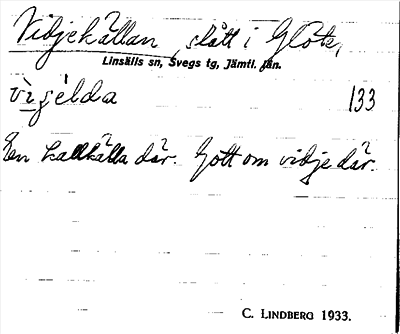 Vidjekällan, slått i Glöte,
Linsälls sn, Svegs tg, Jämtl. län.
133
En kallkälla där. Gott om vidje där.
C. LINDBERG 1933.